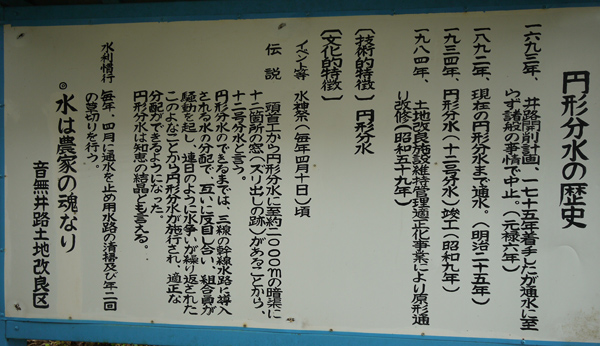 円形分水の歴史
一六九三年、井路開削計画、一七十五年着手したが通水に至
らず諸般の事情で中止。(元禄六年)
一八九二年、現在の円形分水まで通水。(明治二十五年)
一九三四年、円形分水(十二号分水)竣工(昭和九年)
一九八四年、土地改良施設維持管理適正化事業により原形通
り改修(昭和五十九年)
〔技術的特徴〕円形分水
〔文化的特徴〕
イベント等 水神祭(毎年四月十日)頃
伝説
頭首工から円形分水に至約二〇〇〇mの暗渠に
十二箇所の窓(ズリ出しの跡)があることから、
十二号分水と言う。
円形分水のできるまでは、三線の幹線水路に導入
される水の分配で、互いに反目し合い、組合員が
騒動を起し、連日のように水争いが繰り返された
このよなことから円形分水が施行され、適正な
分配ができるようになった。
円形分水は知恵の結晶とも言える。
水利情行 毎年、四月に通水を止め用水路の清掃及び年二回
の草切りを行う。
◎水は農家の魂なり
音無井路土地改良区